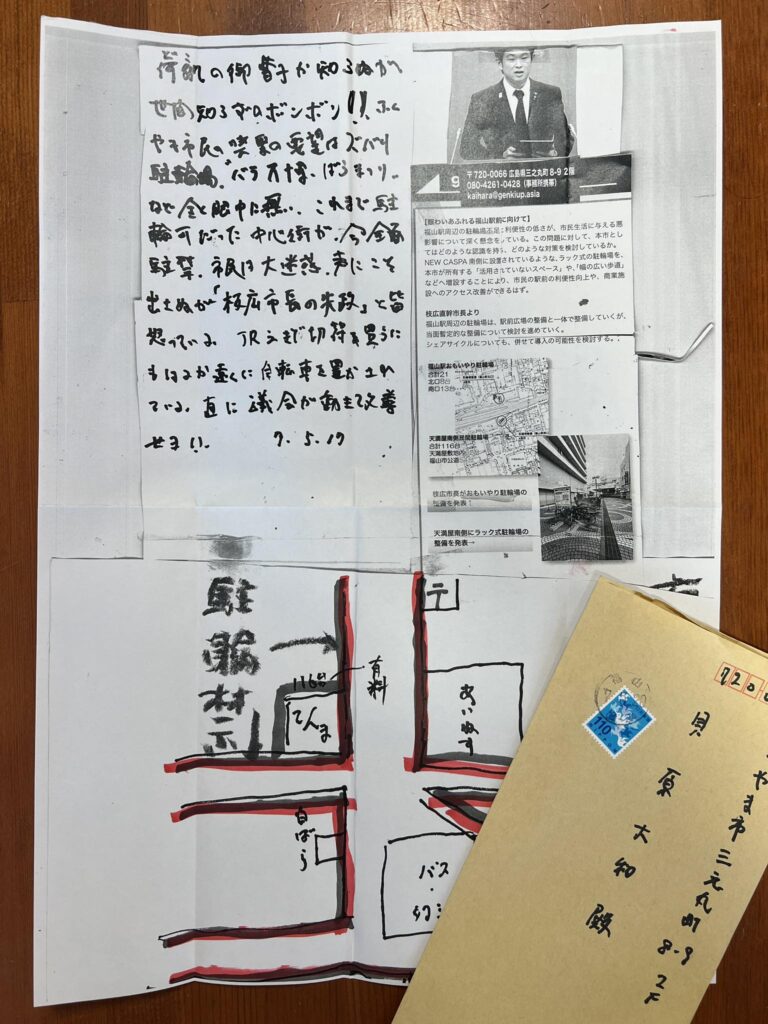 何の御曹子か知らぬが
世間知らずのボンボリ!! ふく
やま市民の喫緊の要望はズバリ
駐輪場。「バラ万博、ばらまつり」
など全く眼中に無い。これまで駐
輪可だった中心街が、今全面
駐禁。市民は大迷惑。声にこそ
出さぬが「枝広市長の失政」と皆
思っている。JRうらで切符を買うに
もはるか遠くに自転車を置かされ
ている。直に議会が動き改善
せよ!! 7.5.19
〒720-0066 広島県三之丸町 8-9 2階
080-4261-0428 (事務所携帯)
kaihara@genkiup.asia
【賑わいあふれる福山駅前に向けて】
福山駅周辺の駐輪場不足:利便性の低さが、市民生活に与える悪
影響について深く懸念をしている。この問題に対して、本市とし
てはどのような認識を持ち、どのような対策を検討しているか。
NEW CASPA 南側に設置されているような、ラック式の駐輪場を、
本市が所有する「活用されていないスペース」や、「幅の広い歩道」
などへ増設することにより、市民の駅前の利便性向上や、商業施
設へのアクセス改善ができるはず。
枝広直幹市長より
福山駅周辺の駐輪場は、駅前広場の整備と一体で整備していくが、
当面暫定的な整備について検討を進めていく。
シェアサイクルについても、併せて導入の可能性を検討する。
福山駅おもいやり駐輪場
合計21
北口8台
南口13台
天満屋南側昼間駐輪場
合計116台
天満屋敷地内
福山市公道
枝広市長がおもいやり駐輪場の
整備を発表!
天満屋南側にラック式駐輪場の
整備を発表→
駐輪禁止
116台
有料
てんま
〒
あいねす
白ばら
バス
720
やま市三之丸町8-9
2F
貝原大和殿
110